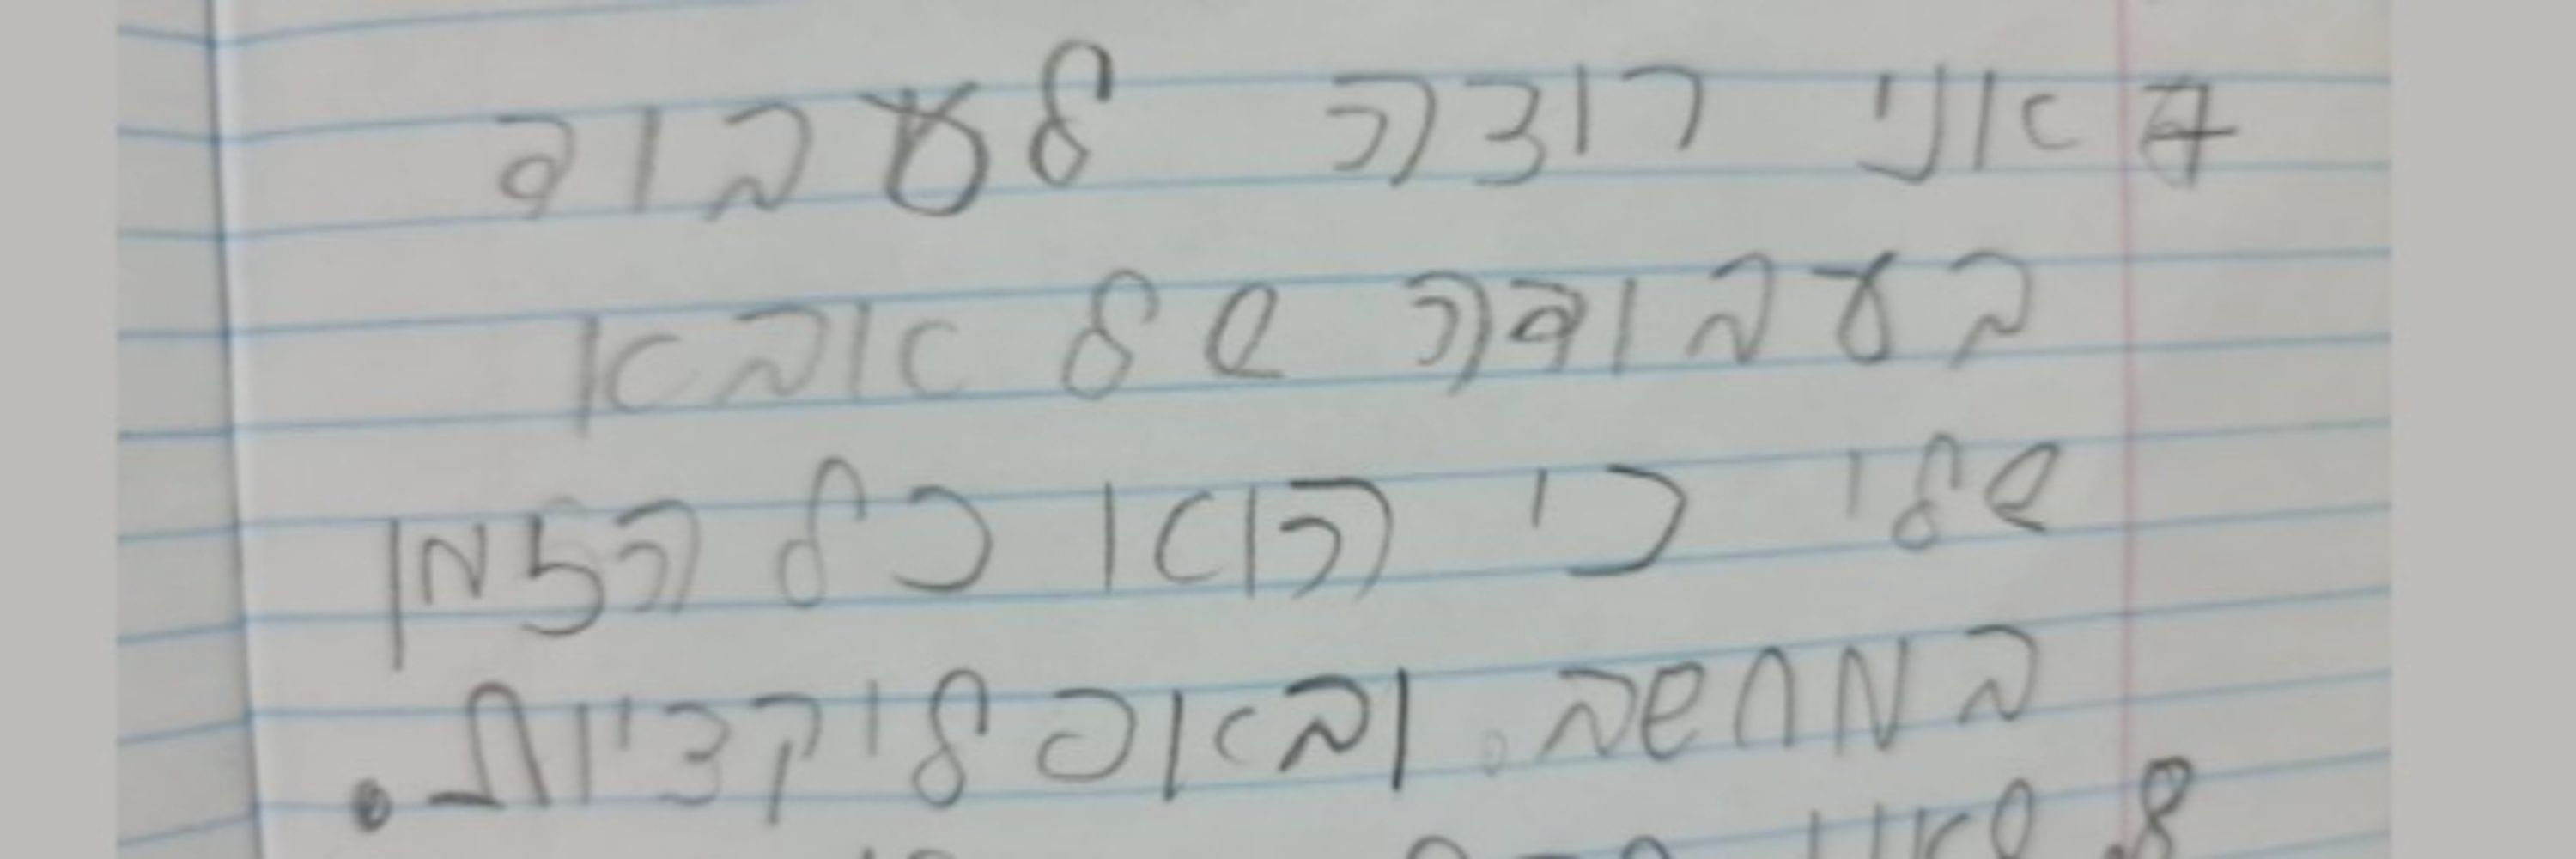 7 אני רוצה לעבוד
בעבודה של אבא
שלי כי הוא כל הזמן
במחשב. ובאפליקציות.
8.